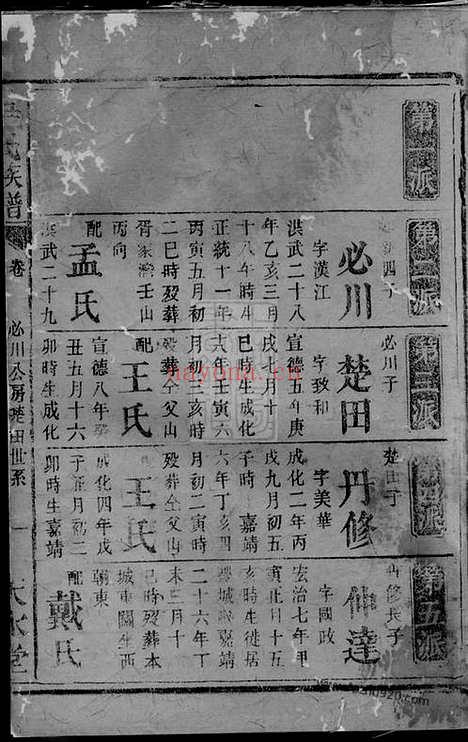 第一派
第二派
必川
字漢江
洪武二十八
年乙亥三月
十八年時
正統十一年
丙寅五月初
二巳時歿葬
壬山
丙向
配
孟氏
洪武二十九
第三派
必川子
楚田
字致和
宣德五年庚
戌七月十
巳時生成化
六年壬寅六
月初二亥時
歿葬仝父山
配
王氏
宣德八年
丑五月十六
卯時生成化
楚田子
丹修
字美華
成化二年丙
戌九月初五
子時 嘉靖
六年丁亥四
月初二寅時
歿葬仝父山
王氏
成化四年戊
子正月初二
卯時生嘉靖
第五派
丹修長子
仙達
字國政
宏治七年甲
寅 月十五
亥時生徙居
城嘉靖
二十六年丁
未三月十
巳時歿葬本
城東關生西
朝東
配
戴氏
氏族普
卷
必川公房楚田世系
一
hayona.cn